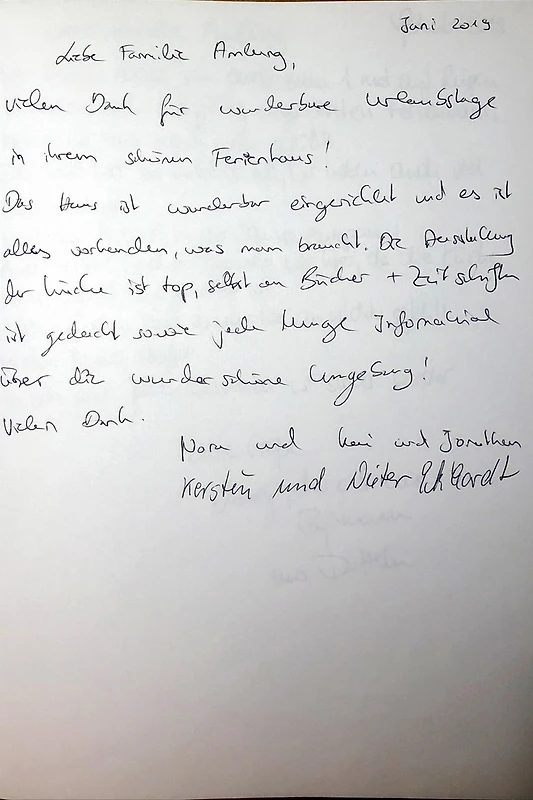 Juni 2019
Liebe Familie Amlung,
vielen Dank für wunderbare Urlaubstage
in ihrem schönen Ferienhaus!
Das Haus ist wunderbar eingerichtet und es ist
alles vorhanden, was man braucht. Die Ausstattung
der Küche ist top, selbst an Bücher + Zeitschriften
ist gedacht sowie jede Menge Infomaterial
über die wunderschöne Umgebung!
Vielen Dank.
Nora und Kai und Jonathan
Kerstin und Dieter Eckhardt